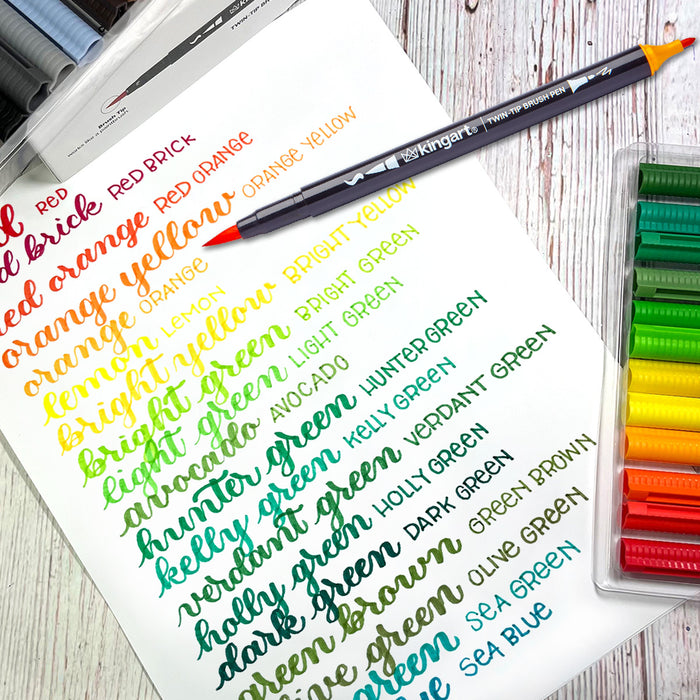 Brush Tip
works like a paintbrush
kingart® | TWIN-TIP BRUSH PEN
RED
red brick RED BRICK
red orange RED ORANGE
orange yellow ORANGE YELLOW
orange ORANGE
lemon LEMON
bright yellow BRIGHT YELLOW
bright green BRIGHT GREEN
light green LIGHT GREEN
avocado AVOCADO
hunter green HUNTER GREEN
kelly green KELLY GREEN
verdant green VERDANT GREEN
holly green HOLLY GREEN
dark green DARK GREEN
green brown GREEN BROWN
olive green OLIVE GREEN
green SEA GREEN
SEA BLUE